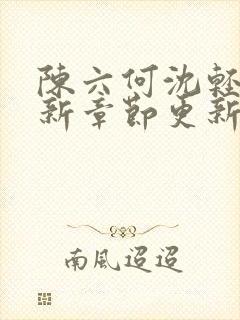 陳六何沈輕
新章節更新
南風迢迢